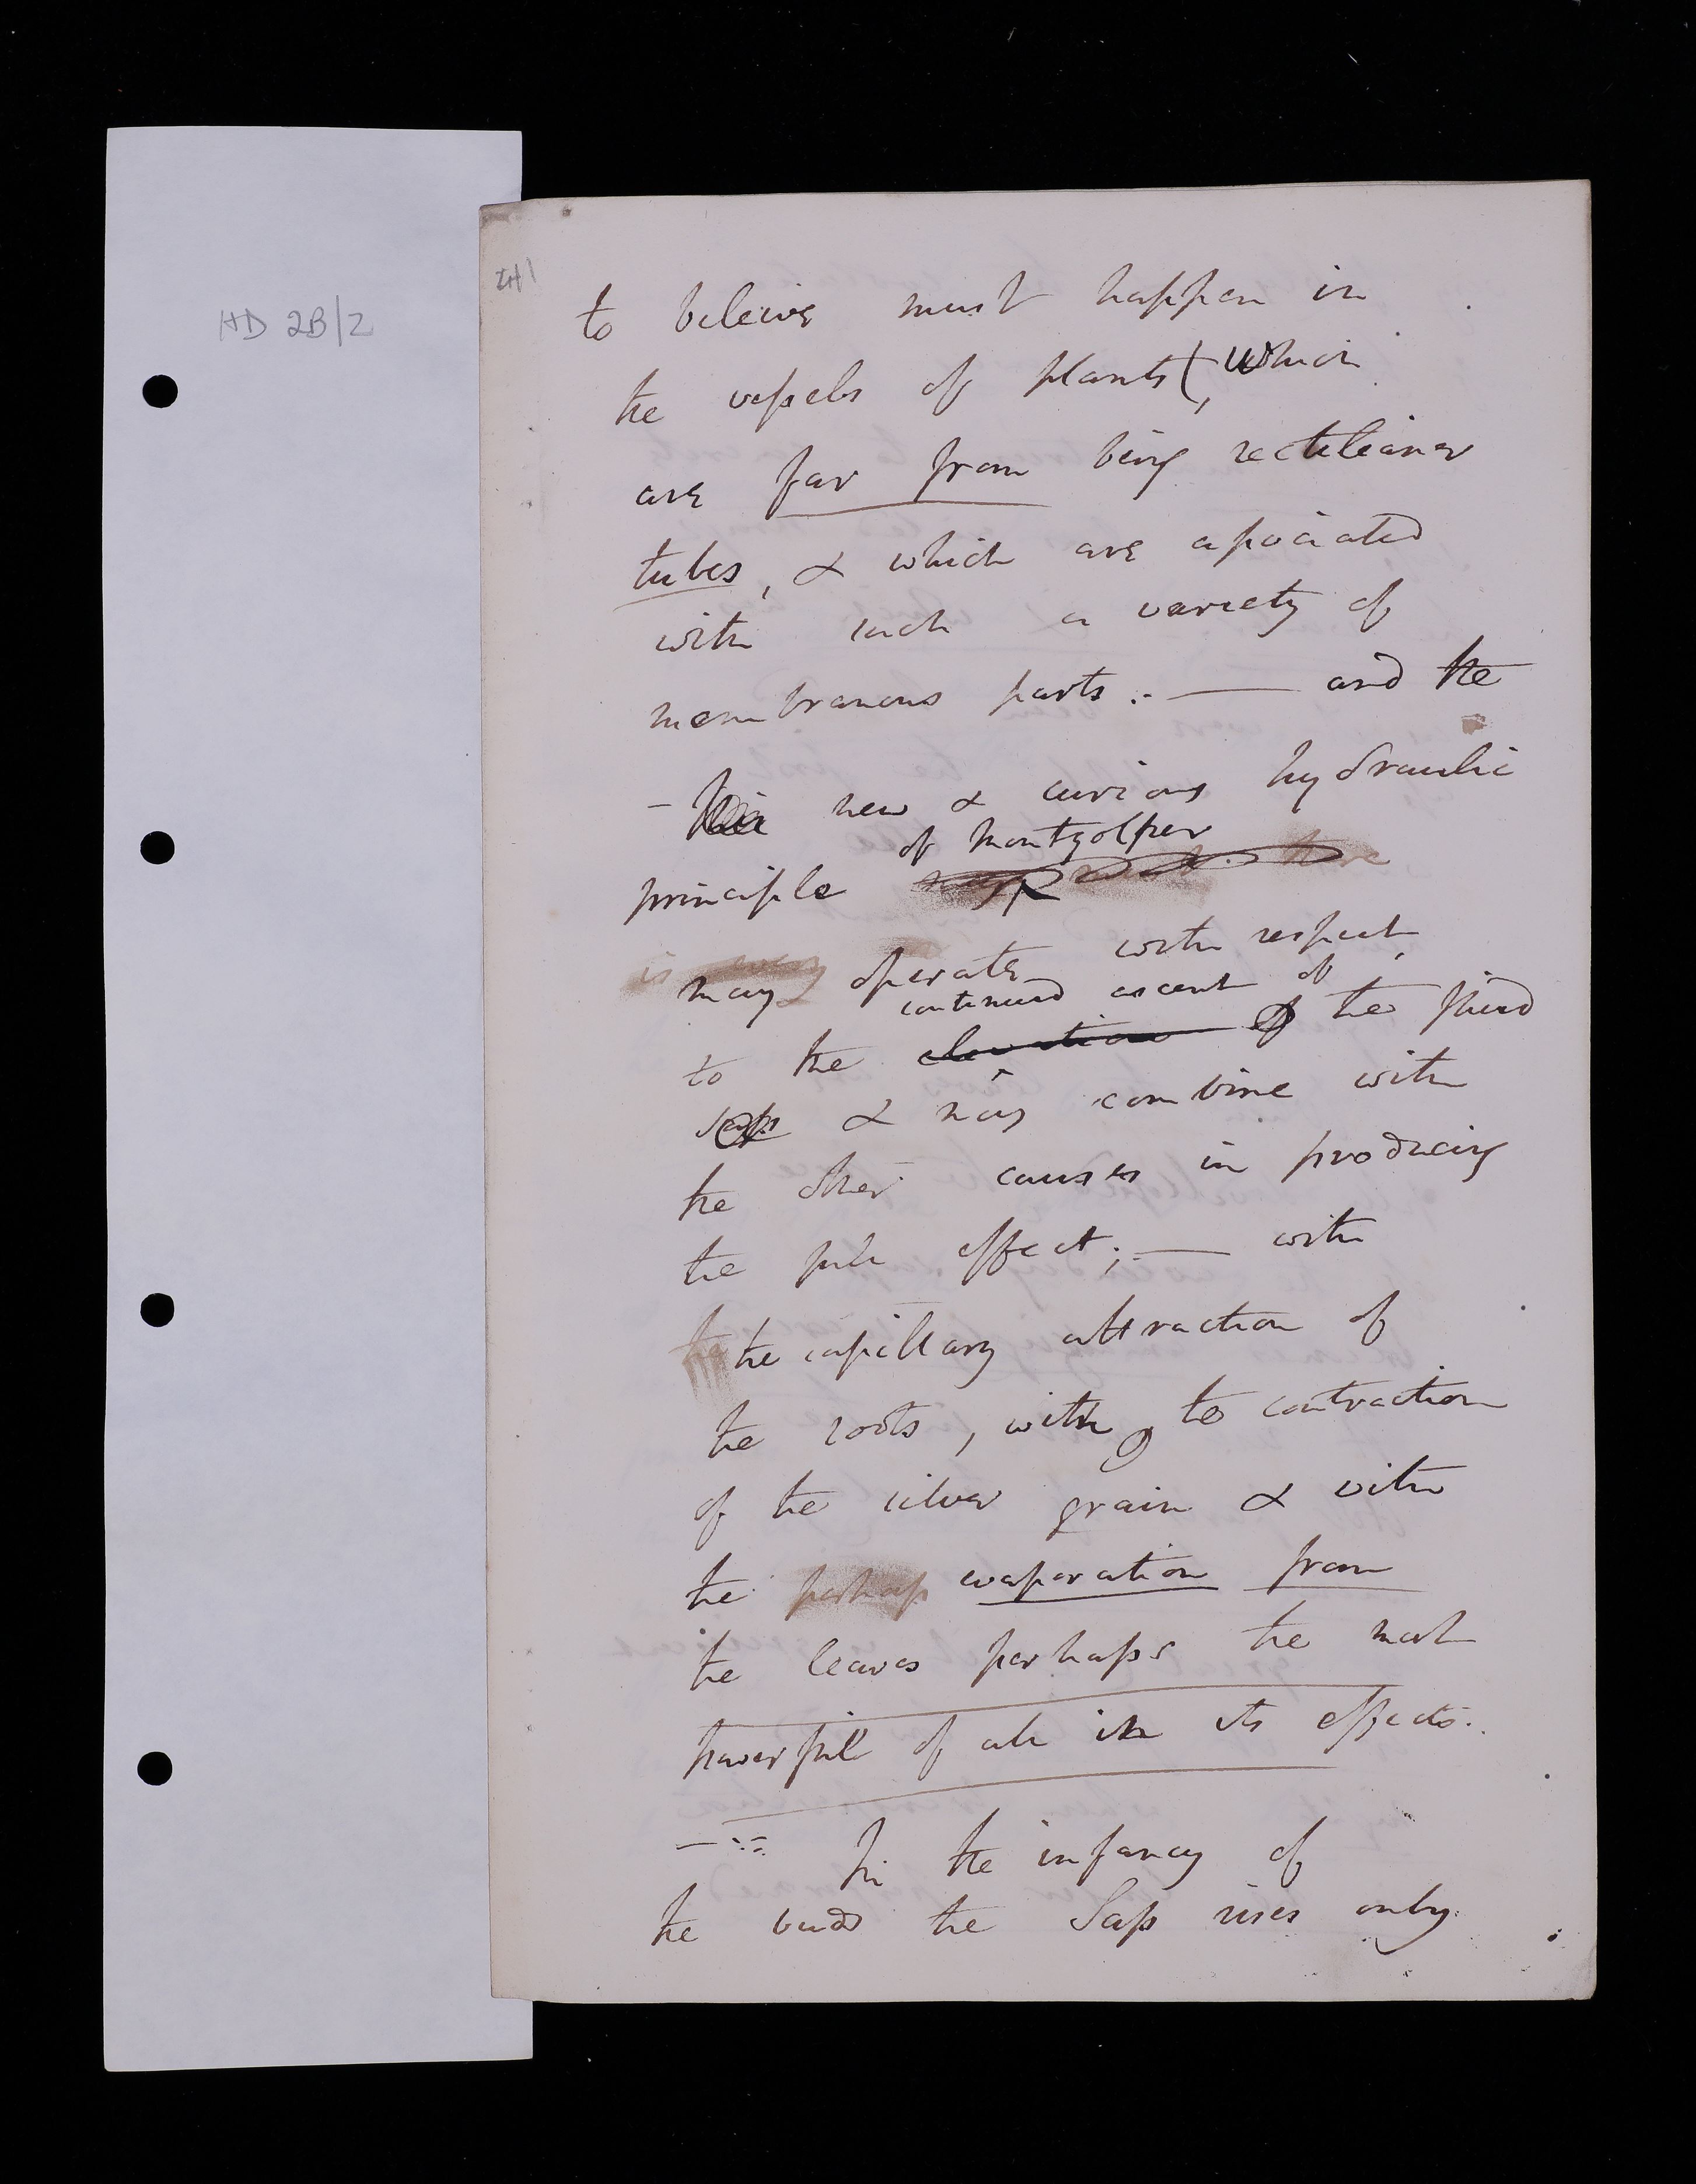 HD 2B/2
241
to beleive must happen in
the vessels of plants (, which
are far from being rectilinear
tubes, & which are associated
with such a variety of
membranous parts. — and the
– new & curious hydraulic
of Montgolfier
principle
is every
may operate with respect
continued ascent of
to the elevation of the fluid
sap & may combine with
the other causes in producing
the full effect; — with
the the capillary attraction of
the roots, with the contraction
of the silver grain & with
the perhaps evaporation from
the leaves perhaps the most
powerfull of all in its effects.
— In the infancy of
the buds the Sap rises only